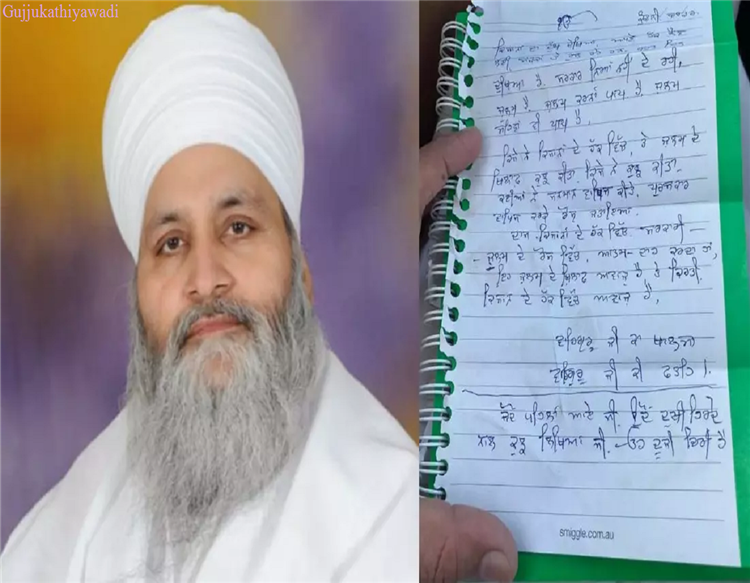 Gujjukathiyawadi
ੴ
ਦੇਖਿਆ ਹੈ ਸਰਕਾਰ ਨਿਆਂ ਨਹੀਂ ਦੇ ਰਹੀ,
ਜ਼ੁਲਮ ਹੈ, ਜ਼ੁਲਮ ਕਰਨਾ ਪਾਪ ਹੈ, ਜ਼ੁਲਮ
ਸਹਿਣਾ ਵੀ ਪਾਪ ਹੈ,
ਕਿਸੇ ਨੇ ਕਿਸਾਨਾਂ ਦੇ ਹੱਕ ਵਿੱਚ, ਤੇ ਜ਼ੁਲਮ ਦੇ
ਖਿਲਾਫ ਕੁਝ ਕੀਤਾ ਕਿਸੇ ਨੇ ਕੁਝ ਕੀਤਾ
ਕਈਆਂ ਨੇ ਸਨਮਾਨ ਵਾਪਿਸ ਕੀਤੇ, ਪੁਰਸਕਾਰ
ਵਾਪਿਸ ਕਰਕੇ ਰੋਸ ਜਤਾਇਆ
ਦਾਸ ਕਿਸਾਨਾਂ ਦੇ ਹੱਕ ਵਿੱਚ ਸਰਕਾਰੀ
ਜ਼ੁਲਮ ਦੇ ਰੋਸ ਵਿੱਚ, ਆਤਮ-ਦਾਹ ਕਰਦਾ ਹਾਂ,
ਇਹ ਜ਼ੁਲਮ ਦੇ ਖਿਲਾਫ ਆਵਾਜ਼ ਹੈ, ਤੇ ਕਿਰਤੀ
ਕਿਸਾਨ ਦੇ ਹੱਕ ਵਿੱਚ ਆਵਾਜ਼ ਹੈ,
ਵਾਹਿਗੁਰੂ ਜੀ ਕਾ ਖਾਲਸਾ
ਵਾਹਿਗੁਰੂ ਜੀ ਕੀ ਫਤਹਿ।
ਪਹਿਲਾਂ ਆਏ ਸੀ ਉਦੋਂ ਦੁਖੀ ਹਿਰਦੇ
ਨਾਲ ਕੁਝ ਲਿਖਿਆ ਸੀ
smiggle.com.au